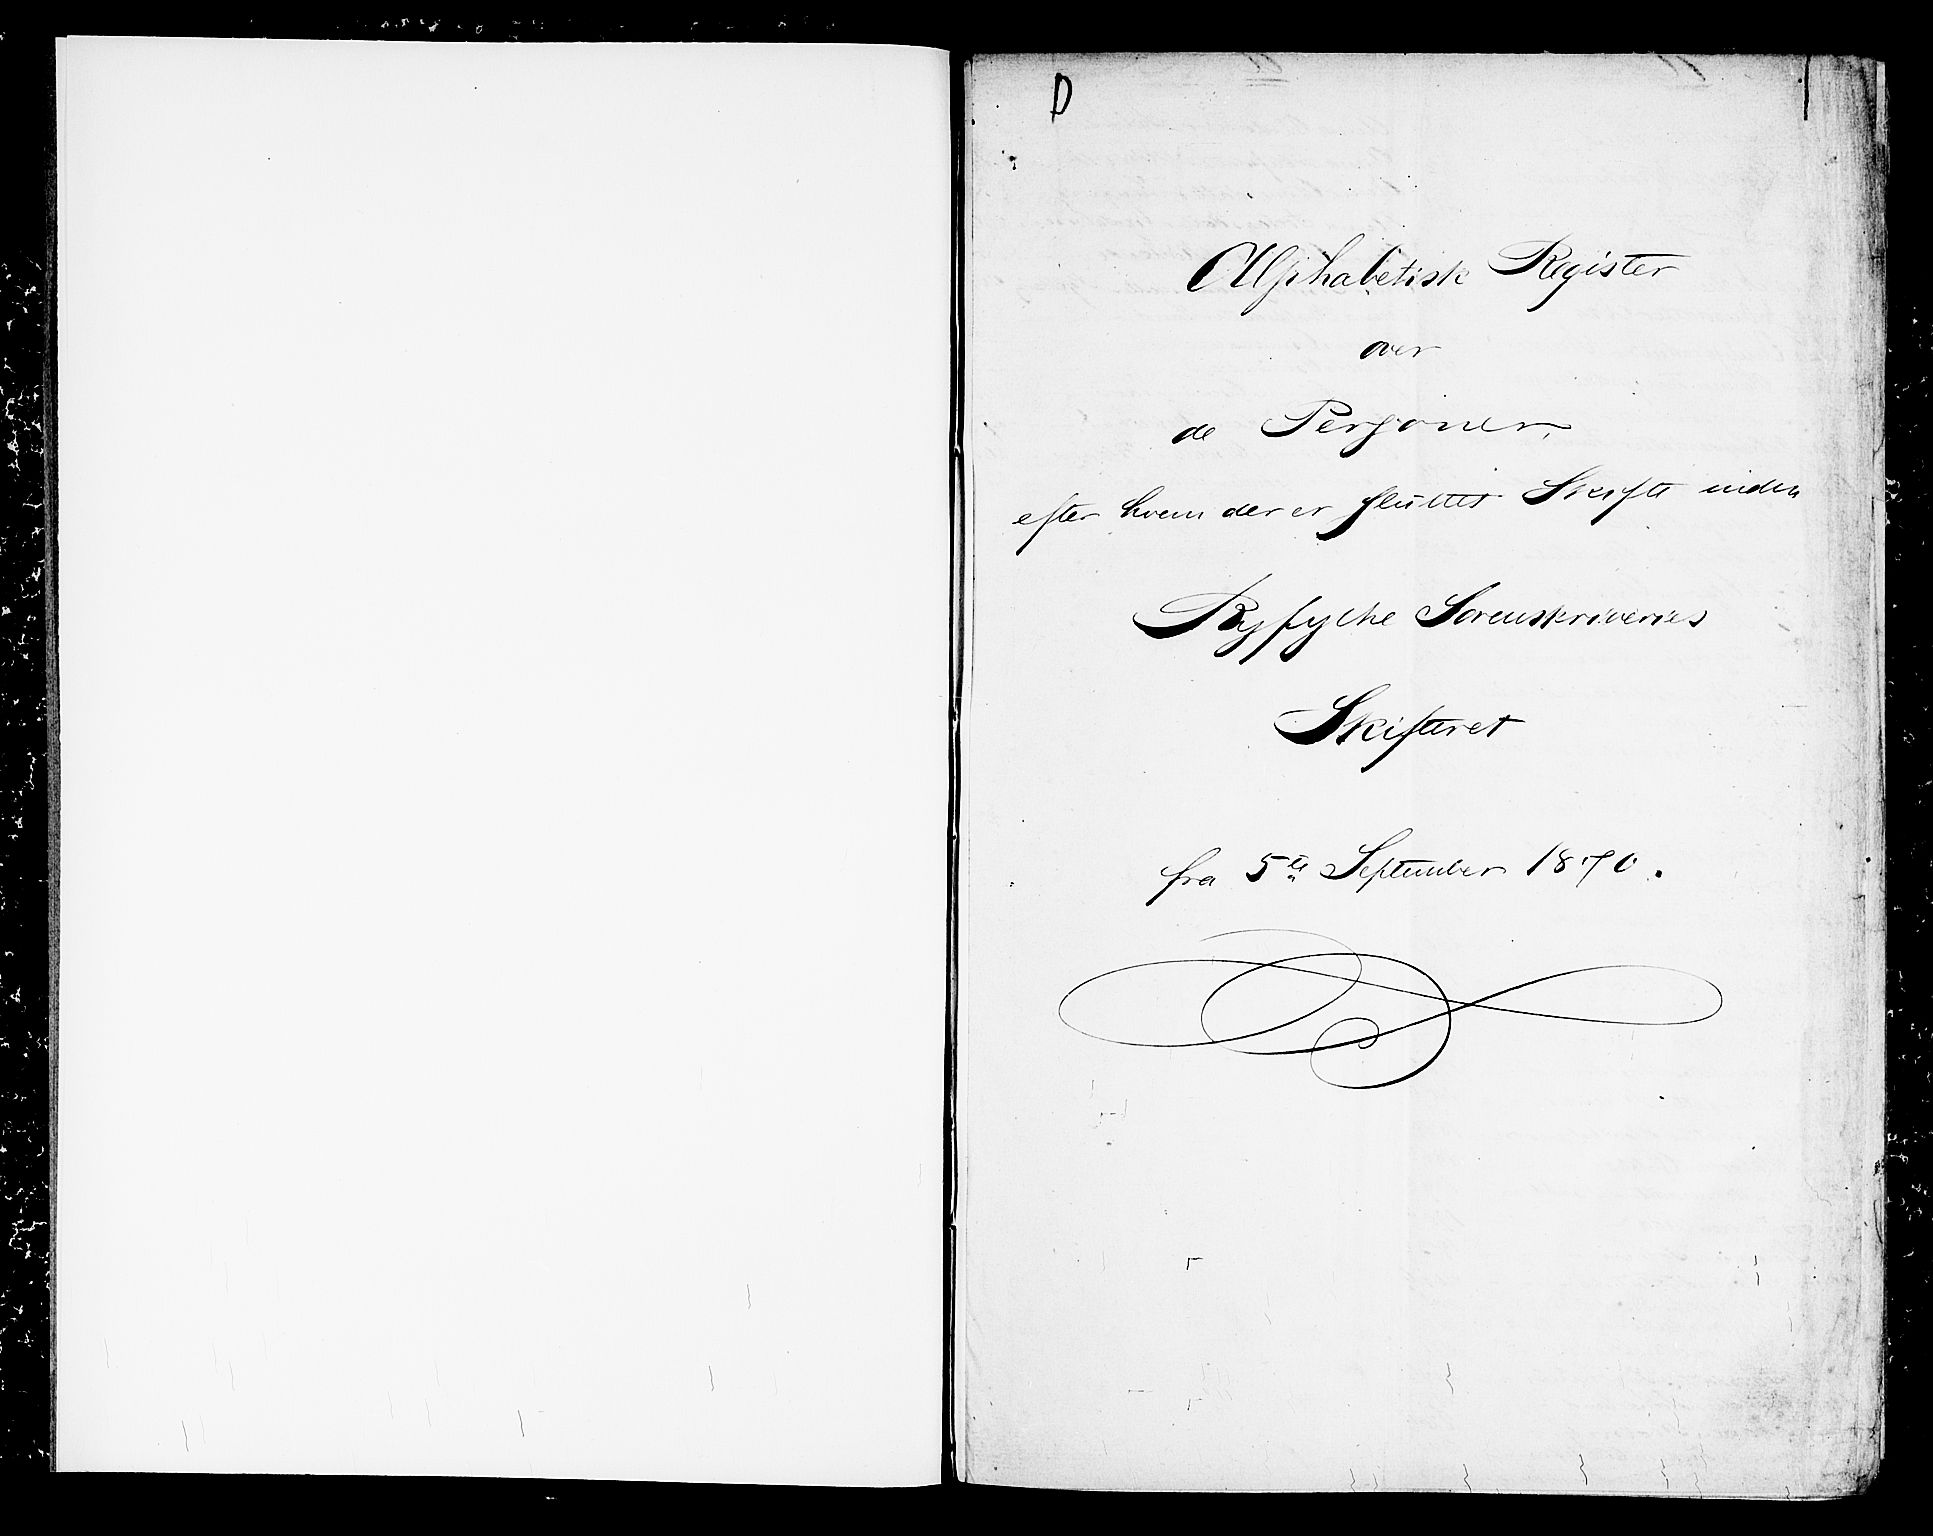 D
Alphabetisk Register
over
de Personer,
efter hvem der er sluttet Skifte inden
Ryfylke Sorenskriveries
Skifteret
fra 5te September 1870.